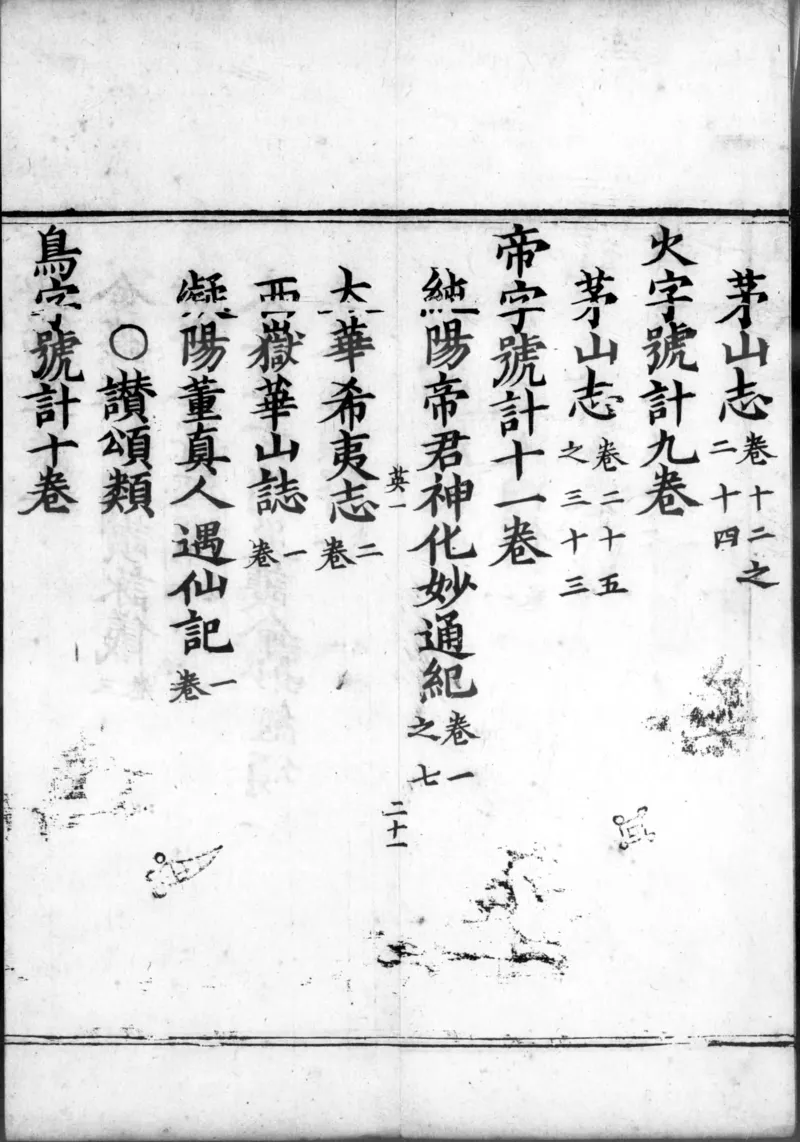 茅山志卷十二之二十四
火字號計九卷
茅山志卷二十五之三十三
帝字號計十一卷
純陽帝君神化妙通紀卷一之七
英一
二十一
太華希夷志二卷
西嶽華山誌一卷
凝陽董真人遇仙記一卷
○讃頌類
鳥字號計十卷